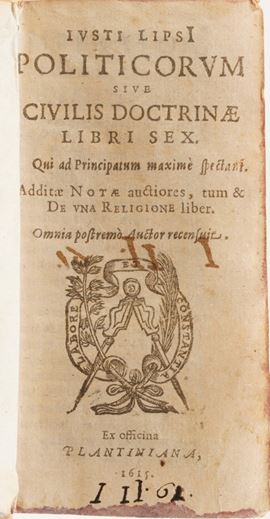 IVSTI LIPSI
POLITICORVM
SIVE
CIVILIS DOCTRINÆ
LIBRI SEX.
Qui ad Principatum maximè spectant.
Additæ NOTÆ auctiores, tum &
DE VNA RELIGIONE liber.
Omnia postremò Auctor recensuit.
LABORE
CONSTANTIA
Ex officina
PLANTINIANA,
1615.